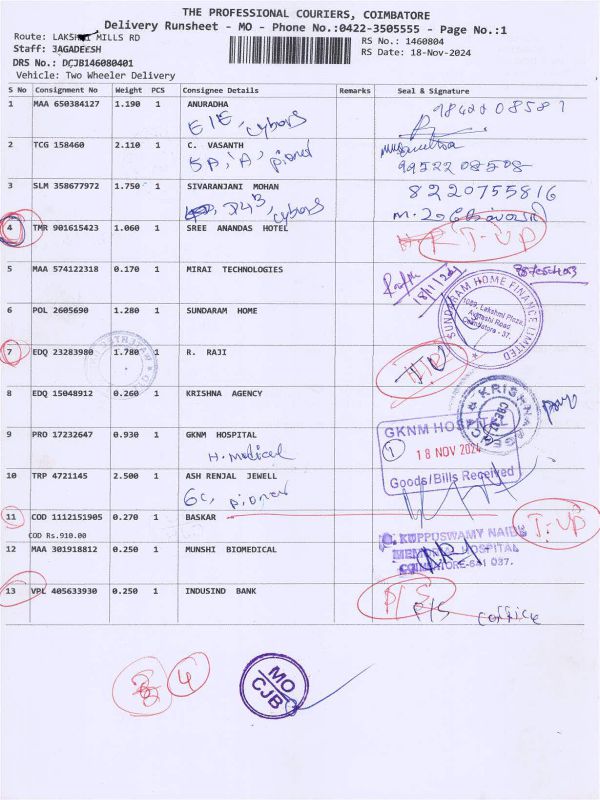 THE PROFESSIONAL COURIERS, COIMBATORE
Delivery Runsheet - MO - Phone No.:0422-3505555 - Page No.:1
Route: LAKSHMI MILLS RD
RS No.: 1460804
Staff: JAGADEESH
RS Date: 18-Nov-2024
DRS No.: DCJB146080401
Vehicle: Two Wheeler Delivery
S No Consignment No Weight PCS Consignee Details Remarks Seal & Signature
1 MAA 650384127 1.190 1 ANURADHA
E1E, cybors
2 TCG 158460 2.110 1 C. VASANTH
5A, 'A', pionel
99522 08508
3 SLM 358677972 1.750 1 SIVARANJANI MOHAN 8220755816
cybors
4 TMR 901615423 1.060 1 SREE ANANDAS HOTEL T-UP
5 MAA 574122318 0.170 1 MIRAI TECHNOLOGIES
18/11/24
6 POL 2605690 1.280 1 SUNDARAM HOME
SUNDARAM HOME FINANCE LIMITED
1089, Lakshmi Plaza,
Avinashi Road
Coimbatore - 37.
7 EDQ 23283980 1.780 1 R. RAJI
8 EDQ 15048912 0.260 1 KRISHNA AGENCY
9 PRO 17232647 0.930 1 GKNM HOSPITAL
H. medical
GKNM HOSPITAL
18 NOV 2024
Goods/Bills Received
10 TRP 4721145 2.500 1 ASH RENJAL JEWELL
6C, pionel
11 COD 1112151905 0.270 1 BASKAR T-UP
COD Rs.910.00
G. KUPPUSWAMY NAIDU
MEMORIAL HOSPITAL
COIMBATORE-641 037.
12 MAA 301918812 0.250 1 MUNSHI BIOMEDICAL
13 VPL 405633930 0.250 1 INDUSIND BANK P/S
P/S office
4
MO
CJB